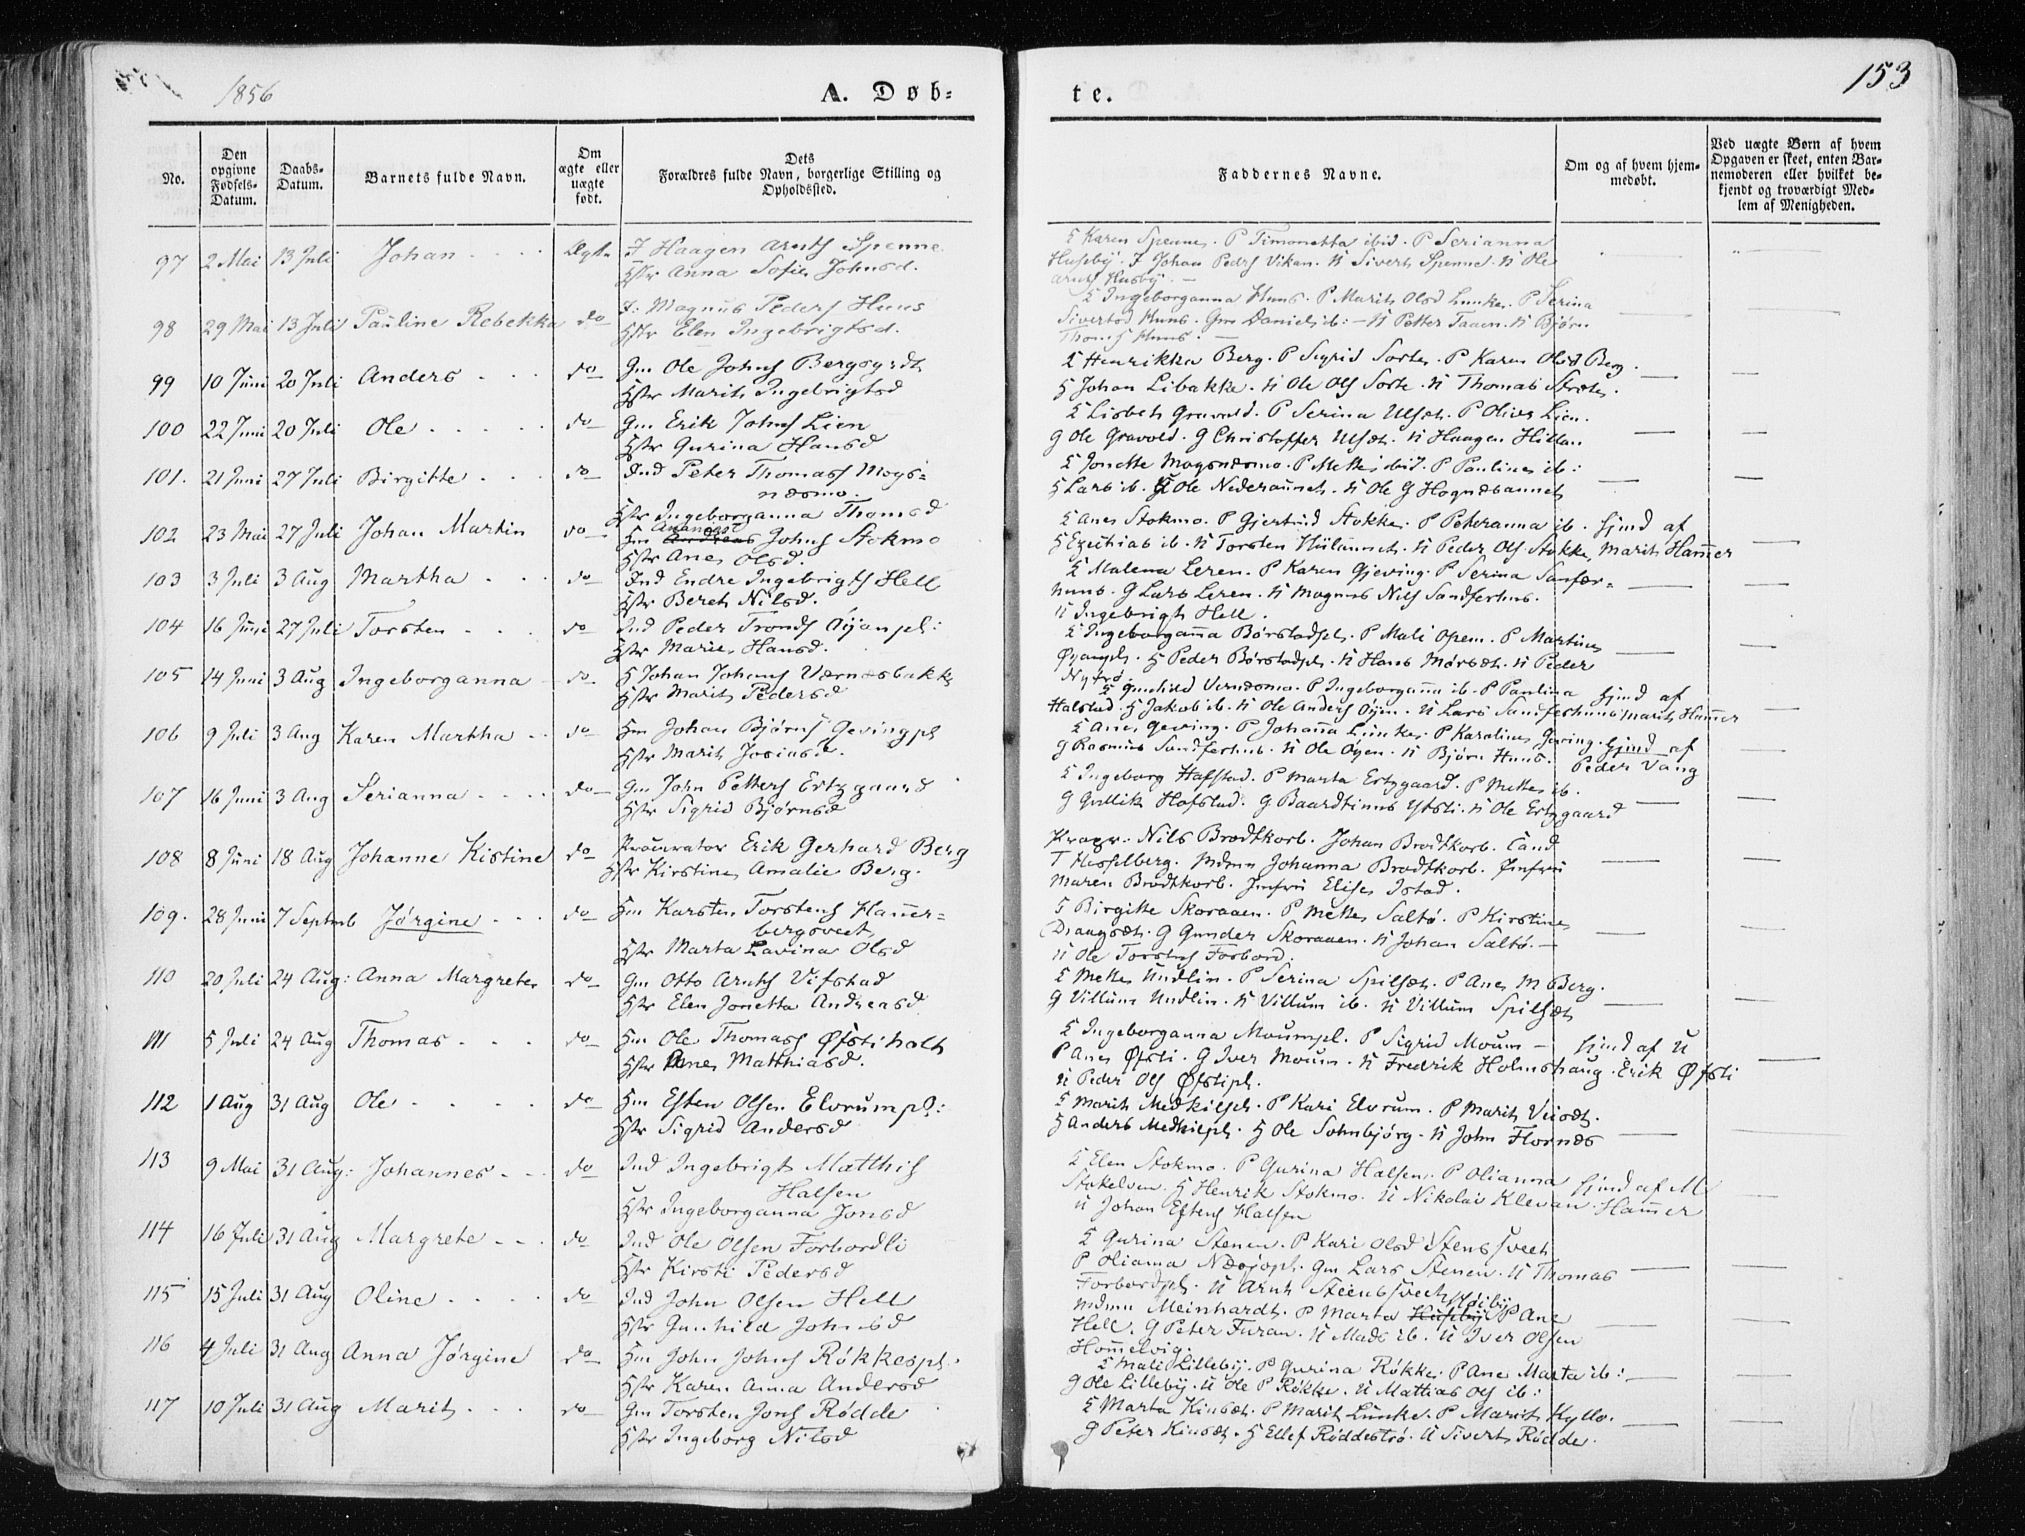 1856
A. Døb-
te.
153
No.
Den opgivne Fødsels-Datum.
Daabs-Datum.
Barnets fulde Navn.
Om ægte eller uægte født.
Dets Forældres fulde Navn, borgerlige Stilling og Opholdssted.
Faddernes Navne.
Om og af hvem hjem-medøbt.
Ved uægte Børn af hvem Opgaven er skeet, enten Bar-nemoderen eller hvilket be-kjendt og troværdigt Med-lem af Menigheden.
97 2 Mai 13 Juli Johan Ægte I Haagen Arnts Spenne
Hstr Anna Sofie Johnsd.
K Karen Spennes. P Timonetta ibid. P Serianna
Huseby. I Johan Peders Vikan. U Sivert Spenne. U Ole
Arnts Husby.
98 29 Mai 13 Juli Pauline Rebekka do I: Magnus Peders Huus
Hstr Elen Ingebrigtsd.
K Ingeborganna Huus. P Marit Olsd Lunke. P Serina
Sivertsd Huus. Gm Daniel ib: U Petter Taaen. U Bjørn
Thoms Huus.
99 10 Juni 20 Juli Anders do Gm Ole Johns Bergsgrdt
Hstr Marit Ingebrigtsd
K Henrikka Berg. P Sigrid Sorte. P Karen Olsd Berg.
H Johan Libakke. U Ole Ols Sorte. U Thomas
100 22 Juni 20 Juli Ole do Gm Erik Johns Lien
Hstr Gurina Hansd
K Lisbet Gravold. P Serina Ulset. P Olive Lien.
G Ole Gravold. G Christoffer Ulset. U Haagen Hillan
101. 21 Juni 27 Juli Birgitte do Ind Peter Thomass Mogs-
næsmo.
Hstr Ingeborganna Thomsd
K Jonette Mogsnæsmo. P Mette ibid. P Pauline ib:
H Lars ib. U Ole Nederaunet. U Ole G Hognæsaunet
102 23 Mai 27 Juli Johan Martin do Hm Andreas Johns Stokmo
Hstr Ane Olsd.
K Anes Stokmo. P Gjertrud Stokke. P Peteranna ib. Hjmd af
H Ezechias ib. U Torsten Hiilaunet. U Peder Ols Stokke Marit Hammer
103 3 Juli 3 Aug Martha do Ind Endre Ingebrigts Hell
Hstr Beret Nilsd.
K Malena Leren. P Karen Gjeving. P Serina Sanfær-
huus. G Lars Leren. U Magnus Nils Sandferhus.
U Ingebrigt Hell.
104 16 Juni 27 Juli Torsten do Ind Peder Tronds Øianpl:
Hstr Marie Hansd.
K Ingeborganna Børstadpl. P Mali Opem. P Martine
Øyanpl. H Peder Børstadpl. U Hans Mørset. U Peder
Nytrø
105 14 Juni 3 Aug Ingeborganna do H Johan Johans Værnesbakke
Hstr Marit Pedersd
K Gunhild Vernæsmo. P Ingeborganna ib. P Paulina Hjmd af
Halstad. H Jakob ib. U Ole Anders Øyen. U Lars Sandferhuus Marit Hammer
106 9 Juli 3 Aug Karen Martha do Hm Johan Bjørns Gevingpl
Hstr Marit Josiasd.
K Anes Geving. P Johanna Lunke. P Karoline Geving. Hjmd af
G Rasmus Sandferhus. U Ole Øyen. U Bjørn Huus. Peder Vang
107 16 Juni 3 Aug Serianna do Gm John Petters Ertzgaard
Hstr Sigrid Bjørnsd
K Ingeborg Hafstad. P Marta Ertzgaard. P Mette ib.
G Gullik Hofstad. G Baardtinus Ytsti. U Ole Ertzgaard
108 8 Juni 18 Aug Johanne Kistine do Procurator Erik Gerhard Berg
Hstr Kirstine Amalie Berg.
Propr: Nils Brodtkorb. Johan Brodtkorb. Cand
T Hesselberg. Mdmm Johanna Brodtkorb. Jmfru
Maren Brodtkorb. Jmfru Elise Istad.
109. 28 Juni 7 Septmb Jørgine do Hm Karsten Torstens Hammer-
bergsveet
Hstr Marta Lavina Olsd
K Birgitte Skoraaen. P Mette Saltø. P Kirstine
Draagset. G Gunder Skoraaen. U Johan Saltø.
U Ole Torstens Forbord.
110 20 Juli 24 Aug: Anna Margrete do Gm Otto Arnts Vifstad
Hstr Elen Jonetta Andreasd
K Mette Undlin. P Serina Spilset. P Ane M Berg.
G Villum Undlin. U Villum ib. U Villum Spilset
111 5 Juli 24 Aug Thomas do Hm Ole Thomass Øfstiholt
Hstr Anne Matthiasd.
K Ingeborganna Moumpl. P Sigrid Moum Hjmd af U
P Ane Øfsti. G Iver Moum. U Fredrik Holmshaug. Erik Øfsti
U Peder Ols Øfstipl.
112 1 Aug 31 Aug Ole do Hm Esten Olsen Elvrumpl:
Hstr Sigrid Andersd
K Marit Medkilpl. P Kari Elvrum. P Marit Veiset.
H Anders Medkilpl. H Ole Sohnbjørg. U John Flornæs
113 9 Mai 31 Aug: Johannes do Ind Ingebrigt Matthis
Halsen
Hstr Ingeborganna Jonsd
K Elen Stokmo. P Gurina Halsen. P Olianna Hjmd af M
Stokelven. H Henrik Stokmo. U Nikolai Klevan. Hammer
U Johan Estens Halsen
114 16 Juli 31 Aug Margrete do Ind Ole Olsen Forbordli
Hstr Kirsti Pedersd
K Gurina Stenen. P Kari Olsd Stensveet
P Olianna Næsjopl. Gm Lars Stenen. U Thomas
Forbordpl. U Arnt Steensveet
115 15 Juli 31 Aug Oline do Ind John Olsen Hell
Hstr Gunhild Johnsd
Mdmm Meinhardt. P Marta Huseby Høiby P Ane
Hell. G Peter Furan. U Mads ib. U Iver Olsen
Hommelvig.
116 4 Juli 31 Aug Anna Jørgine do Hm John Johns Røkkespl.
Hstr Karen Anna Andersd
K Mali Lilleby. P Gurina Røkke. P Ane Marta ib:
G Ole Lilleby. U Ole P Røkke. U Mattias Ols ib:
117 10 Juli 31 Aug Marit do Gm Torsten Jons Rødde
Hstr Ingeborg Nilsd
K Marta Kinset. P Marit Lunke. P Marit Hyllo.
G Peter Kinset. H Ellef Røddestrø. U Sivert Rødde.